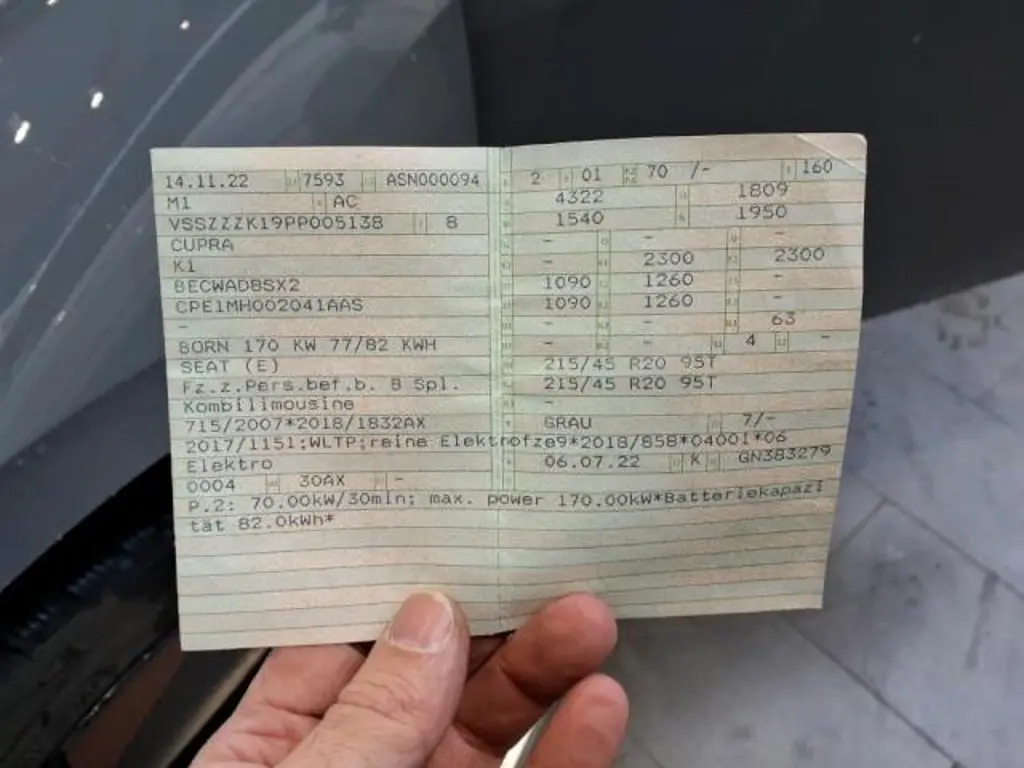 14.11.22 7593 ASN000094
M1 AC
VSSZZZK19PP005138 8
CUPRA
K1
BECWADBSX2
CPE1MH002041AAS
-
BORN 170 KW 77/82 KWH
SEAT (E)
Fz.z.Pers.bef.b. 8 Spl.
Kombilimousine
715/2007*2018/1832AX
2017/1151;WLTP;reine Elektrofze9*2018/858*04001*06
Elektro
0004 30AX -
P.2: 70.00kW/30min; max. power 170.00kW*Batteriekapazi
tät 82.0kWh*
2 01 70 /- 160
4322 1809
1540 1950
- - -
- 2300 2300
1090 1260 -
1090 1260 -
- - 63
- - 4 -
215/45 R20 95T
215/45 R20 95T
-
GRAU 7/-
06.07.22 K GN383279